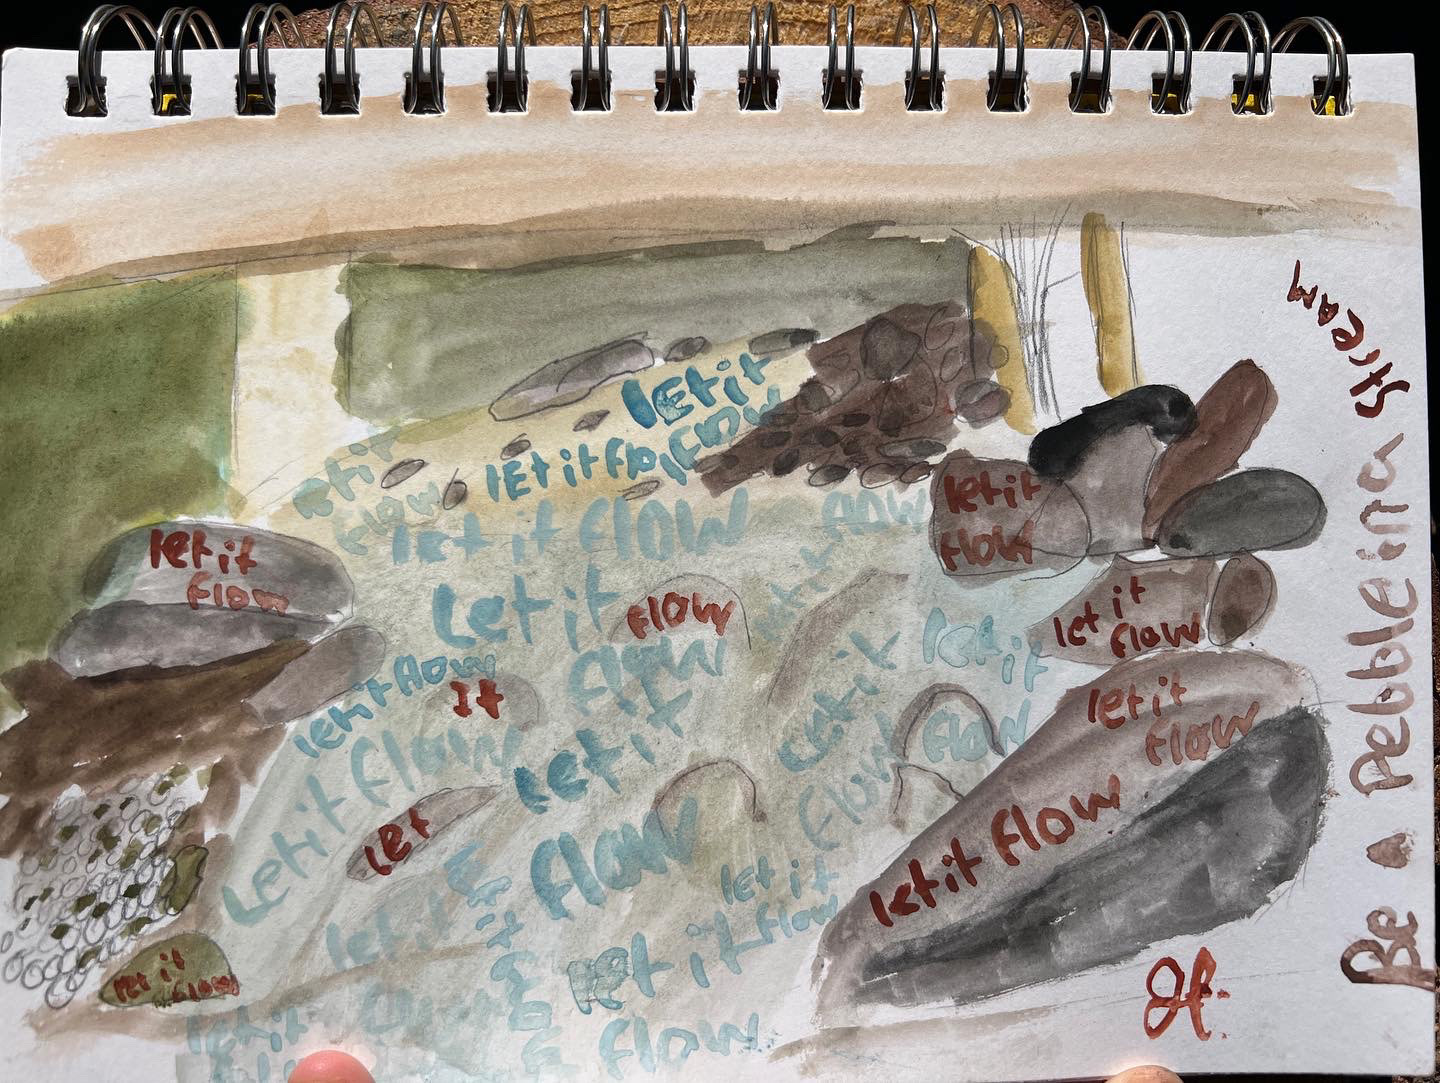 let it
flow
let it
let it flow
let it
flow
let it flow
flow
let it
flow
let it
flow
let it
flow
flow
let it
flow
let it flow
It
let it
flow
let it
flow
let it
flow
let it flow
let it
flow
let it flow
let
let it
flow
let it
flow
let it
let it
flow
let it
let it
flow
Be a pebble in a stream